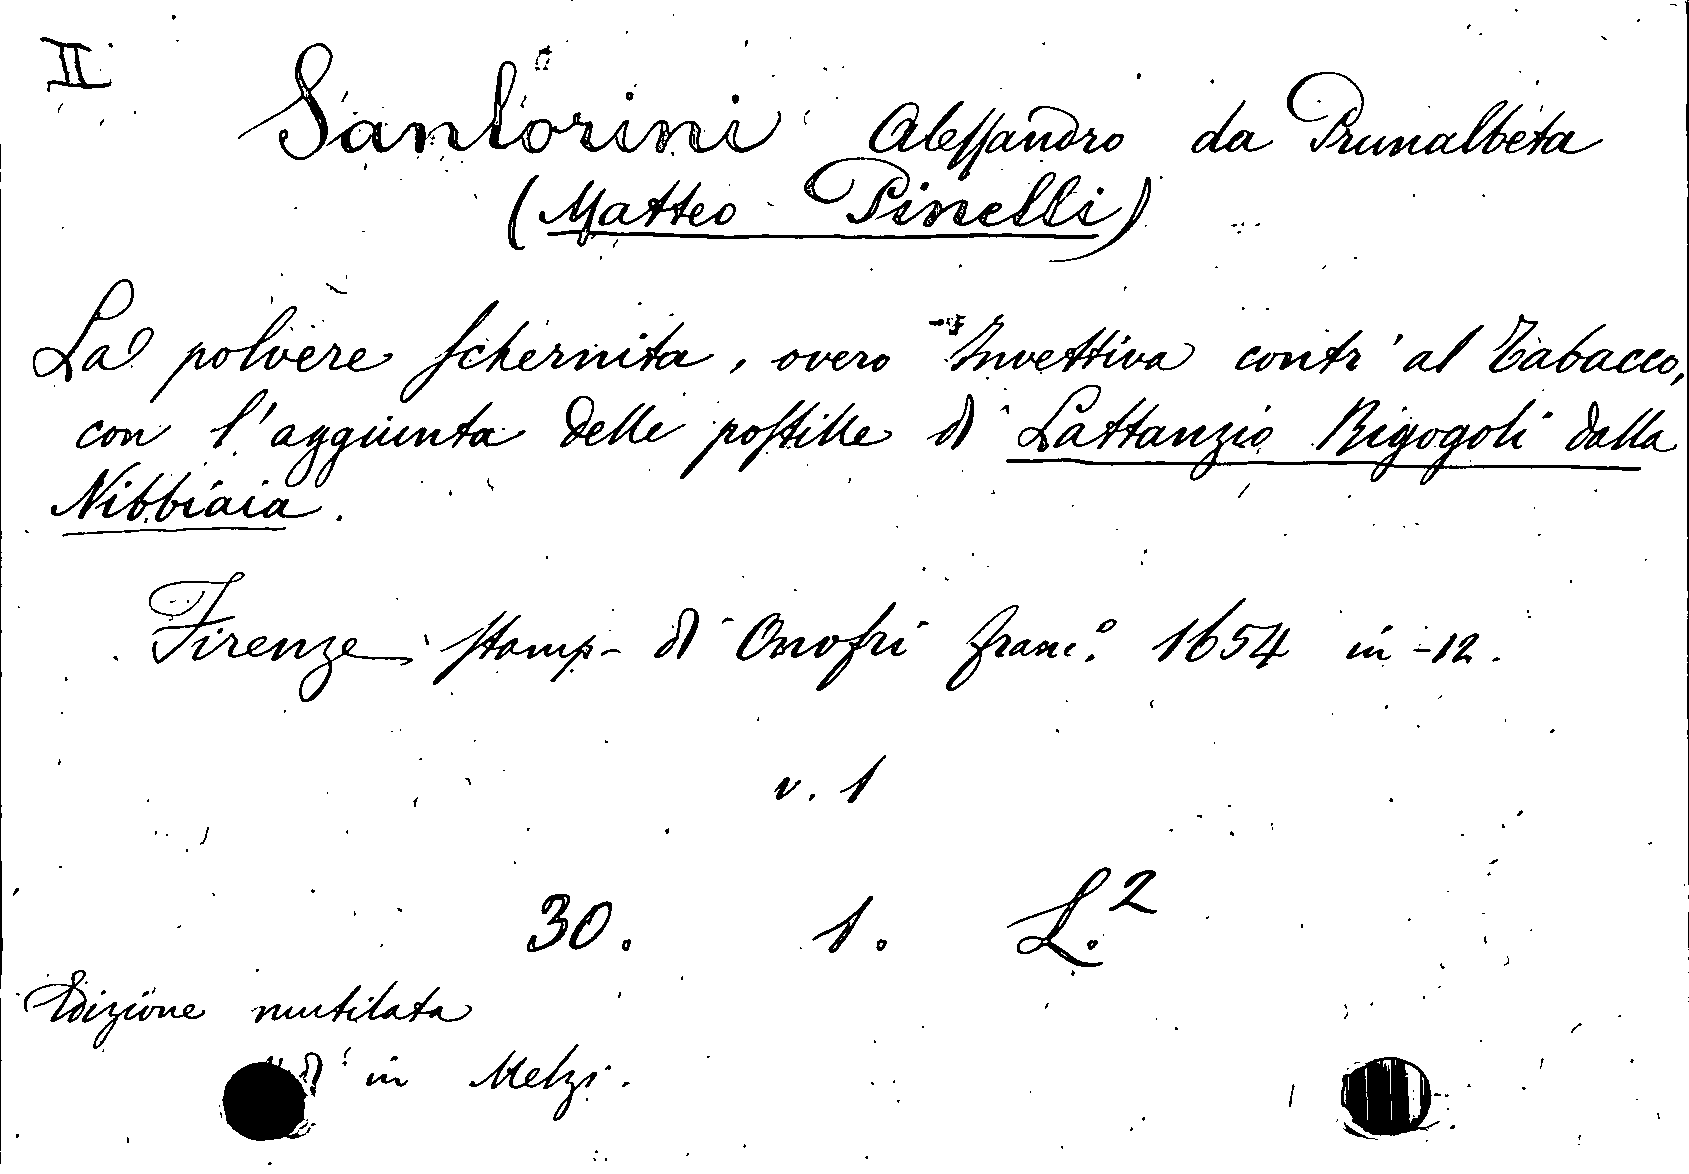 II
Santorini Alessandro da Prunalbeta
(Matteo Pinelli)
La polvere schernita, overo Invettiva contr' al Tabacco,
con l'aggiunta delle postille di Lattanzio Rigogoli dalla
Nibbiaia.
Firenze stamp- di Onofri Franc.º 1654 in-12.
v. 1
30. 1. L.²
Edizione mutilata
in Melzi.